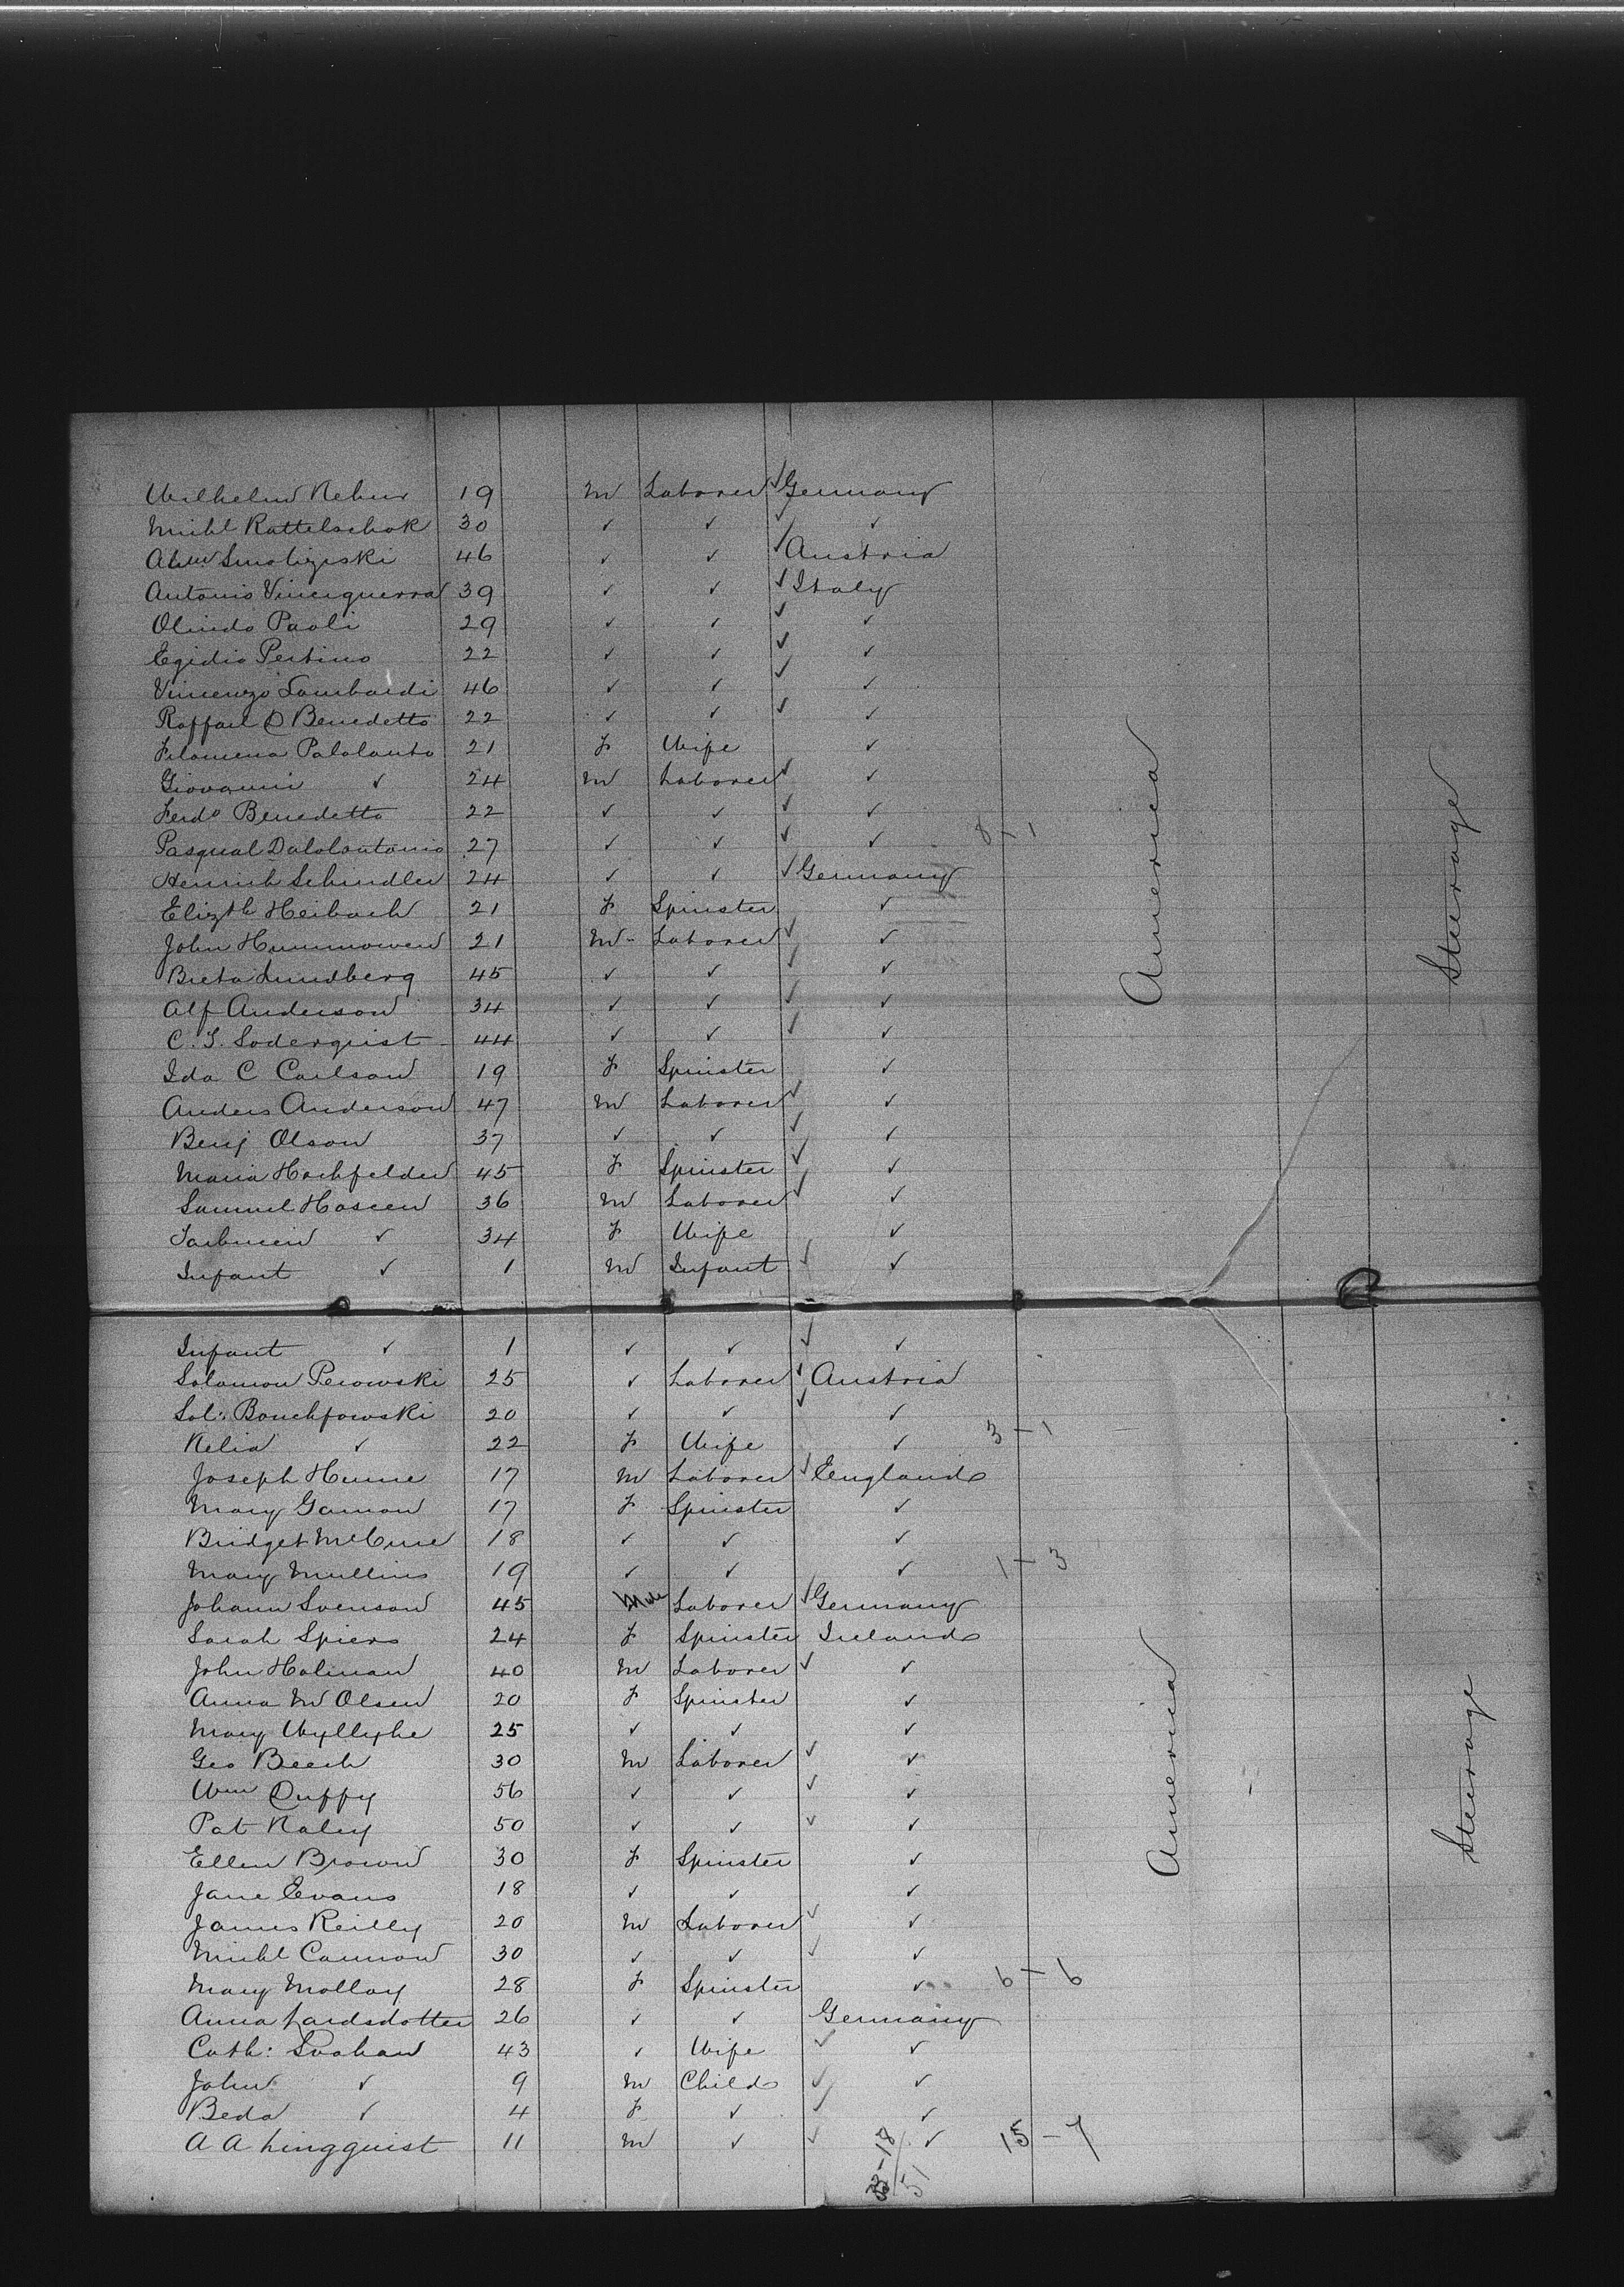 Wilhelm Rehur 19 m Laborer ✓ Germany
Michl Rattelschok 30 ✓ ✓ ✓ ✓
Smolizeski 46 ✓ ✓ ✓ Austria
Antonio Vinciguerra 39 ✓ ✓ ✓ Italy
Olindo Paoli 29 ✓ ✓ ✓ ✓
Egidio Pertino 22 ✓ ✓ ✓ ✓
Vincenzo Lombardi 46 ✓ ✓ ✓ ✓
Raffael D Benedetto 22 ✓ ✓ ✓ ✓
Filomena Palolanto 21 F Wife ✓
Giovanni ✓ 24 m Laborer ✓ ✓
Ferdo Benedetto 22 ✓ ✓ ✓ ✓
Pasqual Dalolantonio 27 ✓ ✓ ✓ ✓ 8-1
Henrich Schindler 24 ✓ ✓ ✓ Germany
Elizth Heibach 21 F Spinster ✓
John Hummowen 21 m Laborer ✓ ✓
Breta Lundberg 45 ✓ ✓ ✓ ✓
Alf Anderson 34 ✓ ✓ ✓ ✓
C. S. Soderquist 44 ✓ ✓ ✓ ✓
Ida C Carlson 19 F Spinster ✓
Anders Anderson 47 m Laborer ✓ ✓
Benj Olson 37 ✓ ✓ ✓ ✓
Maria Hochfelder 45 F Spinster ✓ ✓
Samuel Hoseen 36 m Laborer ✓ ✓
✓ 34 F Wife ✓
Infant ✓ 1 m Infant ✓ ✓
America
Steerage
Infant ✓ 1 ✓ ✓ ✓ ✓
Solomon Perowski 25 ✓ Laborer ✓ Austria
Sol: Bouchfowski 20 ✓ ✓ ✓ ✓
Relia ✓ 22 F Wife ✓ 3-1
Joseph Hume 17 m Laborer ✓ England
Mary Gamon 17 F Spinster ✓
Bridget McCune 18 ✓ ✓ ✓
Mary Mullins 19 ✓ ✓ ✓ 1-3
Johann Svenson 45 Laborer ✓ Germany
Sarah Spiers 24 F Spinster Ireland
John Holman 40 m Laborer ✓ ✓
Anna M Olsen 20 F Spinster ✓
Mary Wyllyhe 25 ✓ ✓ ✓
Geo Beech 30 m Laborer ✓ ✓
Wm Duffy 56 ✓ ✓ ✓ ✓
Pat Raley 50 ✓ ✓ ✓ ✓
Ellen Brown 30 F Spinster ✓
Jane Evans 18 ✓ ✓ ✓
James Reilly 20 m Laborer ✓ ✓
Michl Cannon 30 ✓ ✓ ✓ ✓
Mary Molloy 28 F Spinster ✓ 6-6
Anna Lardsdotter 26 ✓ ✓ Germany
Cath: Svahan 43 ✓ Wife ✓ ✓
John ✓ 9 m Child ✓ ✓
Beda ✓ 4 F ✓ ✓ ✓
A A Lingquist 11 m ✓ ✓ ✓ 15-7
33-18
51
America
Steerage